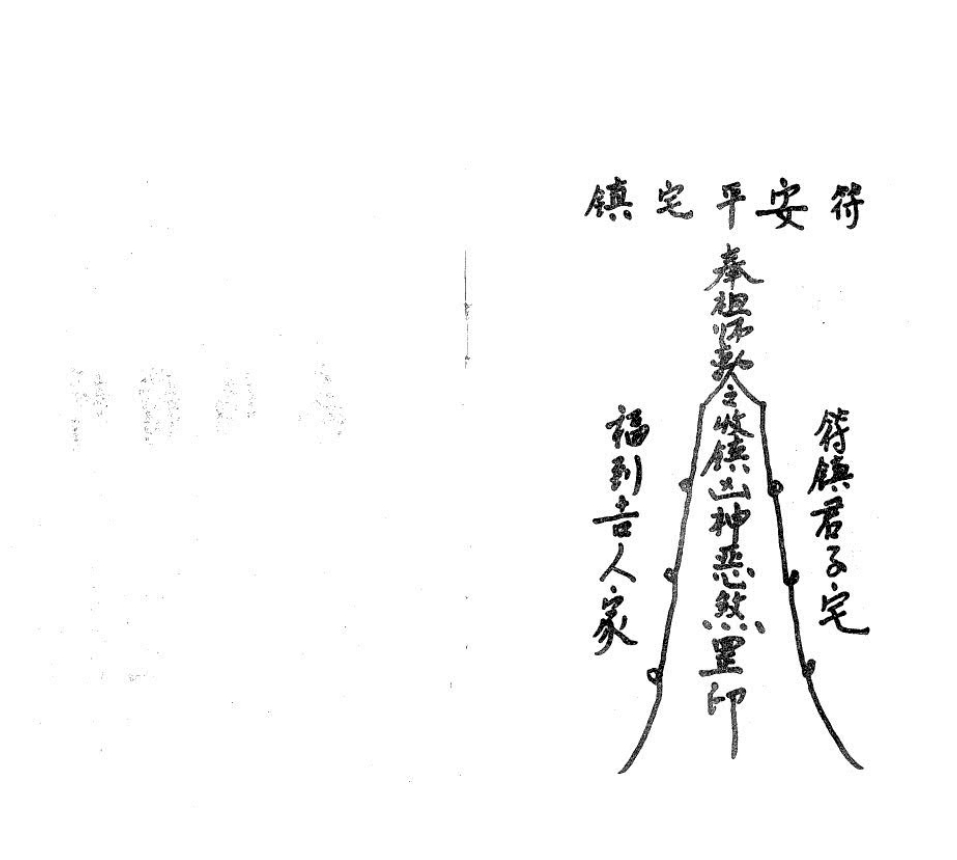 镇宅平安符
奉祖师敕令收镇凶神恶煞罡印
符镇君子宅
福到吉人家